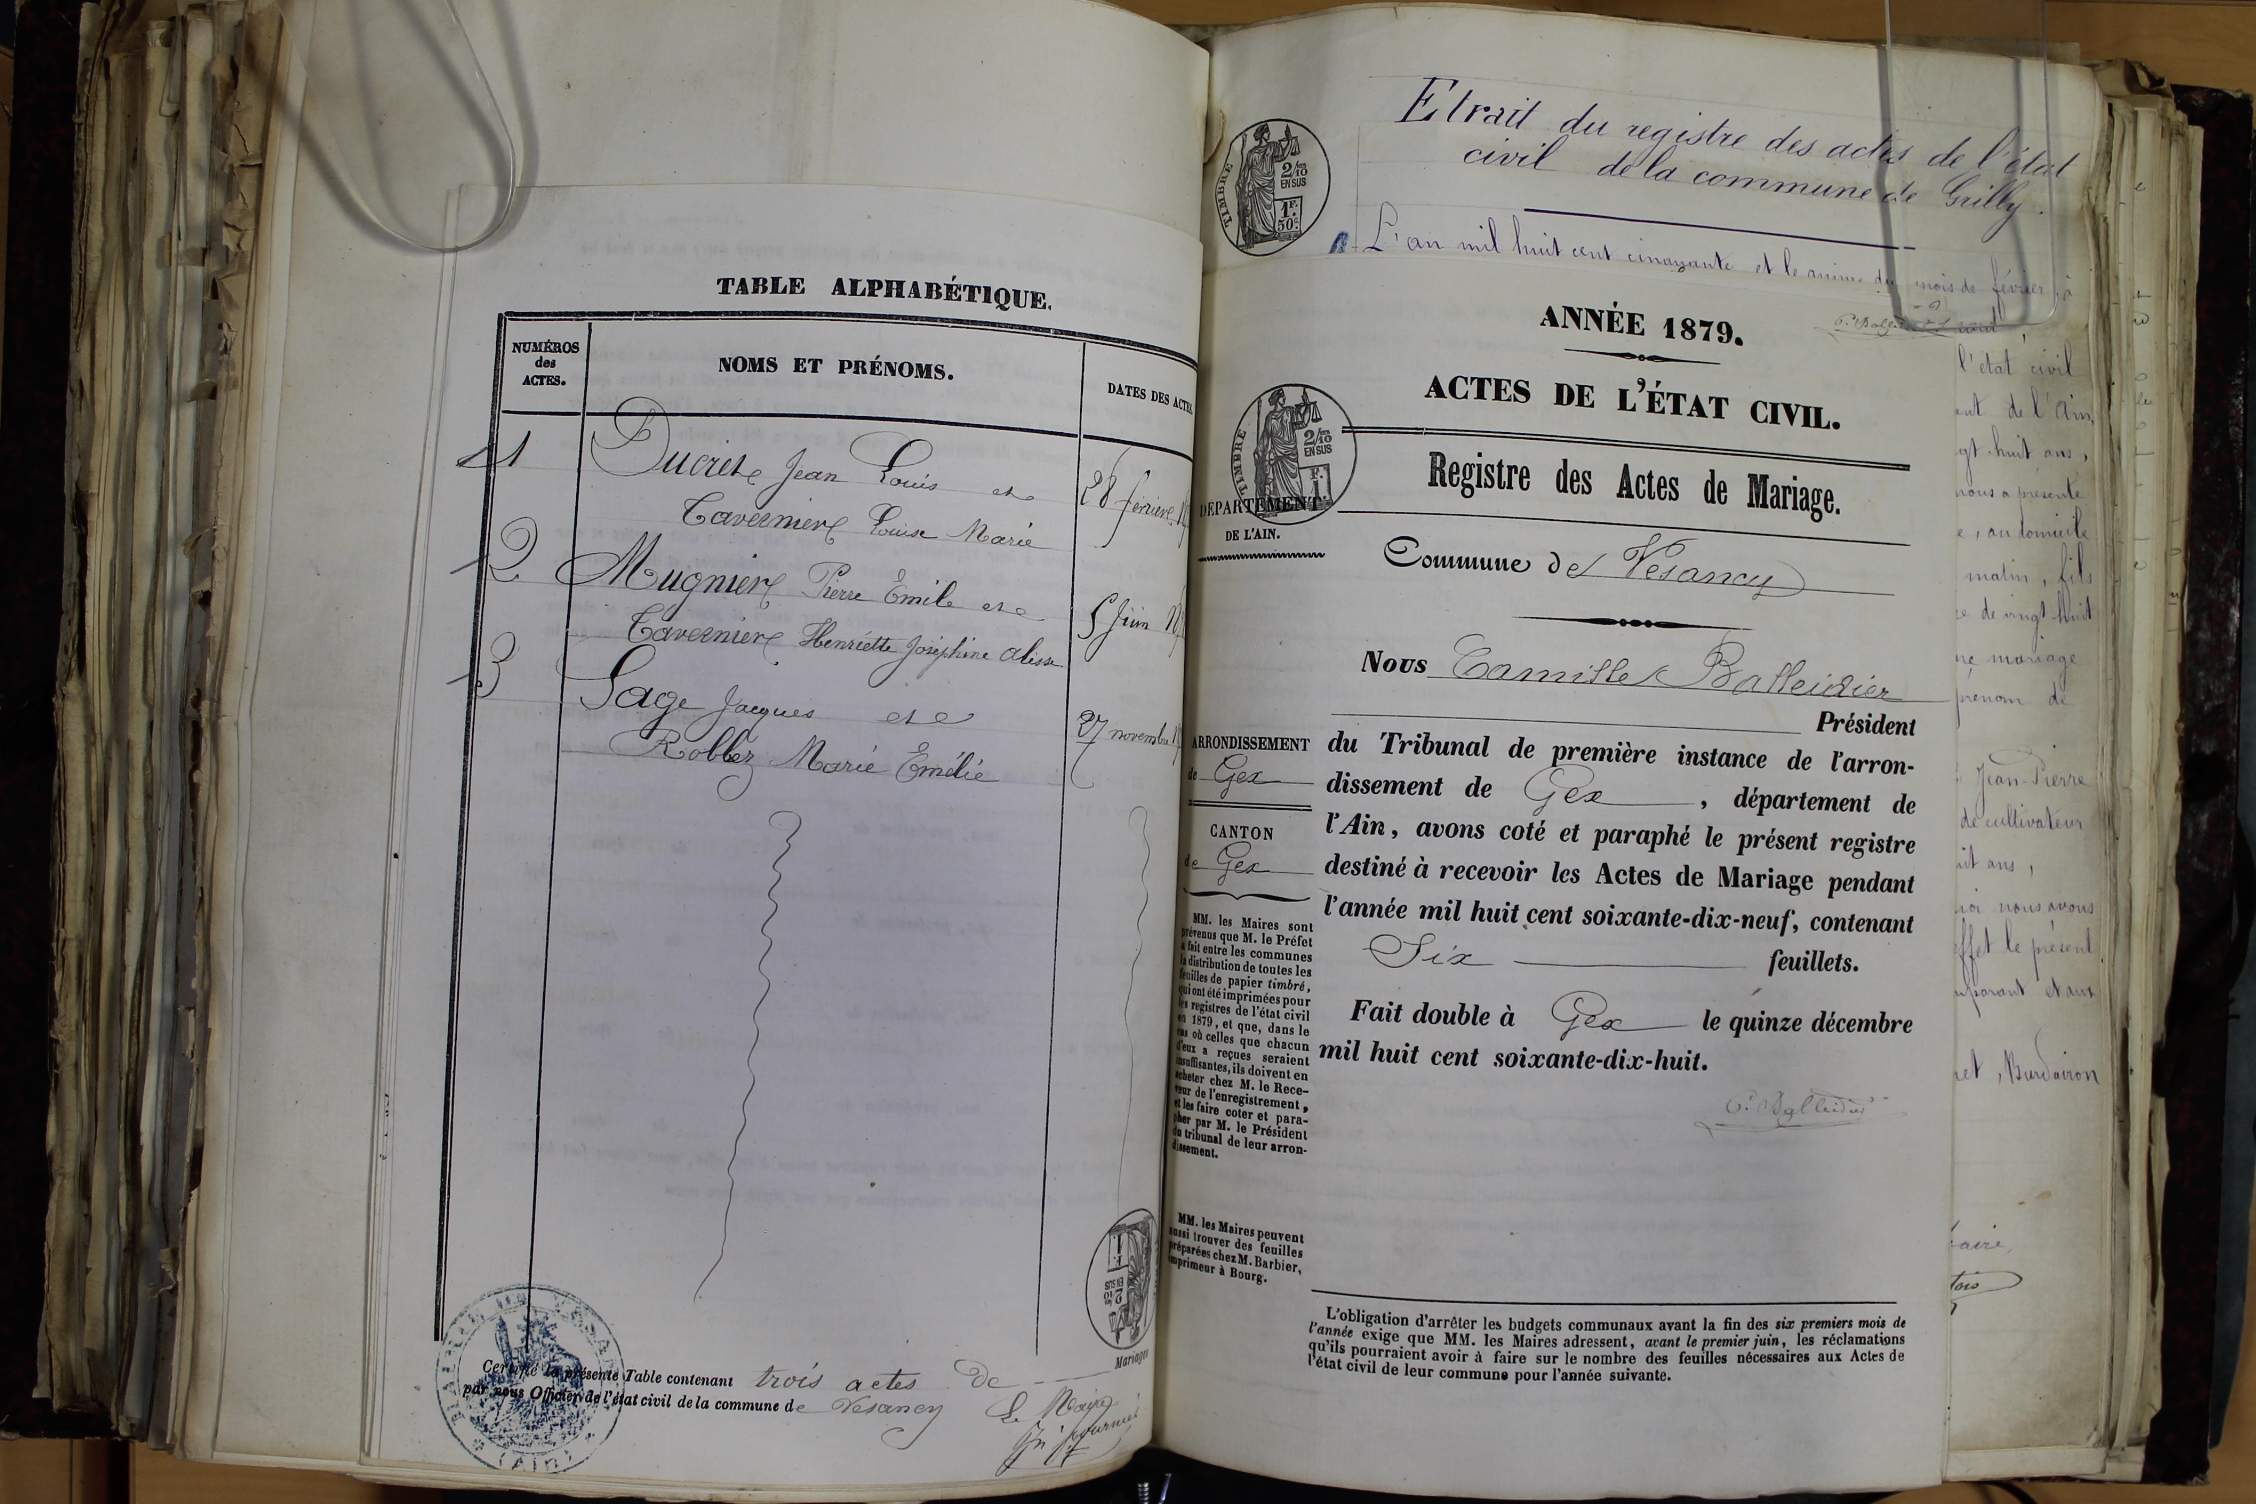 TABLE ALPHABÉTIQUE.
NUMÉROS
des
ACTES.
NOMS ET PRÉNOMS.
DATES DES ACTES.
1
Ducret Jean Louis et
28 février
Tavernier Louise Marie
2
Mugnier Pierre Emile et
5 Juin
Tavernier Henriette Joséphine Alisse
3
Sage Jacques et
27 novembre
Robbez Marie Emélie
Certifié la présente Table contenant trois actes de
Mariages
par nous Officier de l'état civil de la commune de Vesancy
Le Maire
(AIN)
Etrait du registre des actes de l'état
civil de la commune de Grilly.
TIMBRE
2/10
EN SUS
1F.
50c.
L'an mil huit cent cinquante et le du mois de février à
ANNÉE 1879.
ACTES DE L'ÉTAT CIVIL.
TIMBRE
2/10
EN SUS
Registre des Actes de Mariage.
DÉPARTEMENT
DE L'AIN.
Commune de Vesancy
Nous Camille Balleidier
Président
ARRONDISSEMENT
de Gex
CANTON
de Gex
du Tribunal de première instance de l'arron-
dissement de Gex, département de
l'Ain, avons coté et paraphé le présent registre
destiné à recevoir les Actes de Mariage pendant
l'année mil huit cent soixante-dix-neuf, contenant
Six feuillets.
Fait double à Gex le quinze décembre
mil huit cent soixante-dix-huit.
MM. les Maires sont
prévenus que M. le Préfet
a fait entre les communes
la distribution de toutes les
feuilles de papier timbré,
qui ont été imprimées pour
les registres de l'état civil
en 1879, et que, dans le
cas où celles que chacun
d'eux a reçues seraient
insuffisantes, ils doivent en
acheter chez M. le Rece-
veur de l'enregistrement,
et les faire coter et para-
pher par M. le Président
du tribunal de leur arron-
dissement.
MM. les Maires peuvent
aussi trouver des feuilles
préparées chez M. Barbier,
imprimeur à Bourg.
L'obligation d'arrêter les budgets communaux avant la fin des six premiers mois de
l'année exige que MM. les Maires adressent, avant le premier juin, les réclamations
qu'ils pourraient avoir à faire sur le nombre des feuilles nécessaires aux Actes de
l'état civil de leur commune pour l'année suivante.
l'état civil
de l'Ain,
huit ans,
nous a présenté
au domicile
matin, fils
de vingt huit
mariage
prénom de
Jean-Pierre
de cultivateur
ans,
nous avons
le présent
et aux
Burdairon